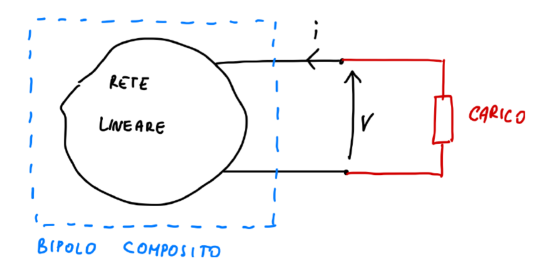 i
RETE
LINEARE
V
CARICO
BIPOLO COMPOSITO